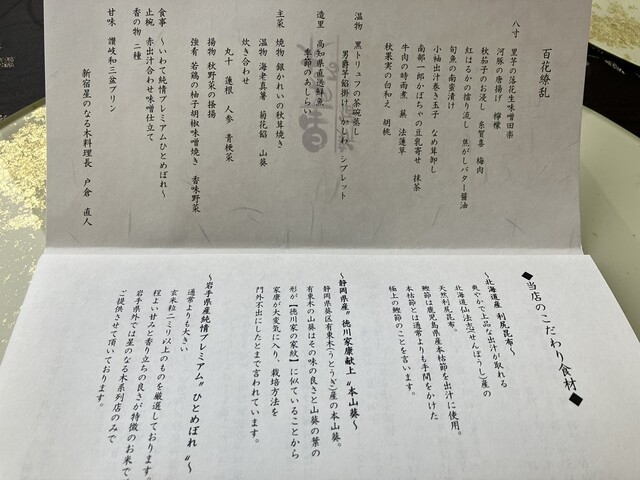 百花繚乱
八寸 里芋の落花生味噌田楽
河豚の唐揚げ 檸檬
秋茄子のお浸し 糸賀喜 梅肉
紅はるかの擂り流し 焦がしバター醤油
旬魚の南蛮漬け
小袖出汁巻き玉子 なめ茸卸し
南部一郎かぼちゃの豆乳寄せ 抹茶
牛肉の時雨煮 蕪 法蓮草
秋果実の白和え 胡桃
温物 黒トリュフの茶碗蒸し
男爵芋餡掛け かしわ シブレット
造里 高知県直送鮮魚
季節のあしらい
主菜 焼物 銀かれいの秋茸焼き
温物 海老真薯 菊花餡 山葵
炊き合わせ
丸十 蓮根 人参 青梗菜
揚物 秋野菜の掻揚
強肴 若鶏の柚子胡椒味噌焼き 香味野菜
食事 ～いわて純情プレミアムひとめぼれ～
止椀 赤出汁合わせ味噌仕立て
香の物 二種
甘味 讃岐和三盆プリン
新宿星のなる木料理長 戸倉 直人
◆当店のこだわり食材◆
～北海道産 利尻昆布～
爽やかで上品な出汁が取れる
北海道仙法志(せんぽうし)産の
天然利尻昆布。
鰹節は鹿児島県産本枯節を出汁に使用。
本枯節とは通常よりも手間をかけた
極上の鰹節のことを言います。
～静岡県産〝徳川家康献上〟本山葵～
静岡県葵区有東木(うとうぎ)産の本山葵。
有東木の山葵はその味の良さと山葵の葉の
形が【徳川家の家紋】に似ていることから
家康が大変気に入り、栽培方法を
門外不出にしたとまで言われています。
～岩手県産純情プレミアム〝ひとめぼれ〟～
通常よりも大きい
玄米粒二ミリ以上のものを厳選しております。
程よい甘みと香り立ちの良さが特徴のお米で
岩手県外では星のなる木系列店のみで
ご提供させて頂いております。